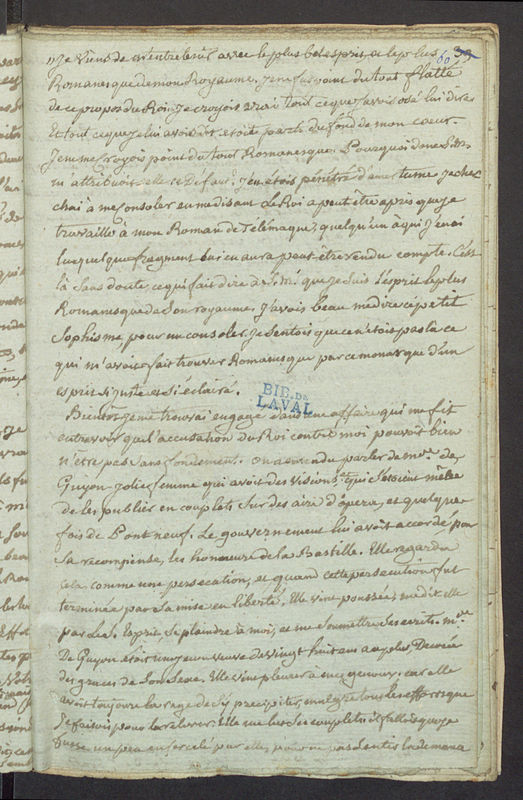 60 35
"Je viens de m'entretenir avec le plus bel esprit et le plus
Romanesque de mon Royaume. Je ne fus point du tout flatté
de ce propos du Roi. Je croyois vrai tout ce que j'avois osé lui dire
Et tout ce que je lui avois dit etoit parti du fond de mon coeur.
Je ne me croyois point du tout Romanesque. Pourquoi donc S. M.
m'attribuoit elle ce Défaut? J'en étois pénétré d'amertume. Je cher
chai à me consoler en me disant Le Roi a peut être apris que je
travaille à mon Roman de Télémaque; quelqu'un à qui j'en ai
lu quelque fragment lui en aura peut-être rendu compte. C'est
là sans doute, ce qui fait dire à S. M. que je suis l'esprit le plus
Romanesque de son royaume. J'avois beau me dire ce petit
Sophisme pour me consoler. Je sentois que ce n'étoit pas là ce
qui m'avoit fait trouver Romanesque par ce monarque d'un
esprit si juste et si éclairé.
BIB. DE
LAVAL
Bientôt je me trouvai engagé dans une affaire qui me fit
entrevoir que l'accusation du Roi contre moi pouvoit bien
n'être pas sans fondement. On a entendu parler de Mme. de
Guyon jolie femme qui avoit des visions, et qui s'etoient mêlée
de les publier en couplets sur des airs d'opéra, et quelque-
fois de Pont neuf. Le gouvernement lui avoit accordé pour
sa recompense, les honneurs de la Bastille. Elle regarda
cela comme une persecution, et quand cette persecution fut
terminée par sa mise en liberté, Elle vint poussée, me dit elle
par le S. Esprit se plaindre à moi, et me soumettre ses ecrits. Mme.
De Guyon étoit une jeune veuve de vingt huit ans au plus Décorée
des graces de son sexe. Elle vint pleurer à mes genoux, car elle
avoit toujours la rage de s'y precipiter, malgré tous les efforts que
je faisois pour la relever. Elle me lut ses couplets il fallut que je
fusse un peu ensorcelé par elle, pour ne pas sentir la demence